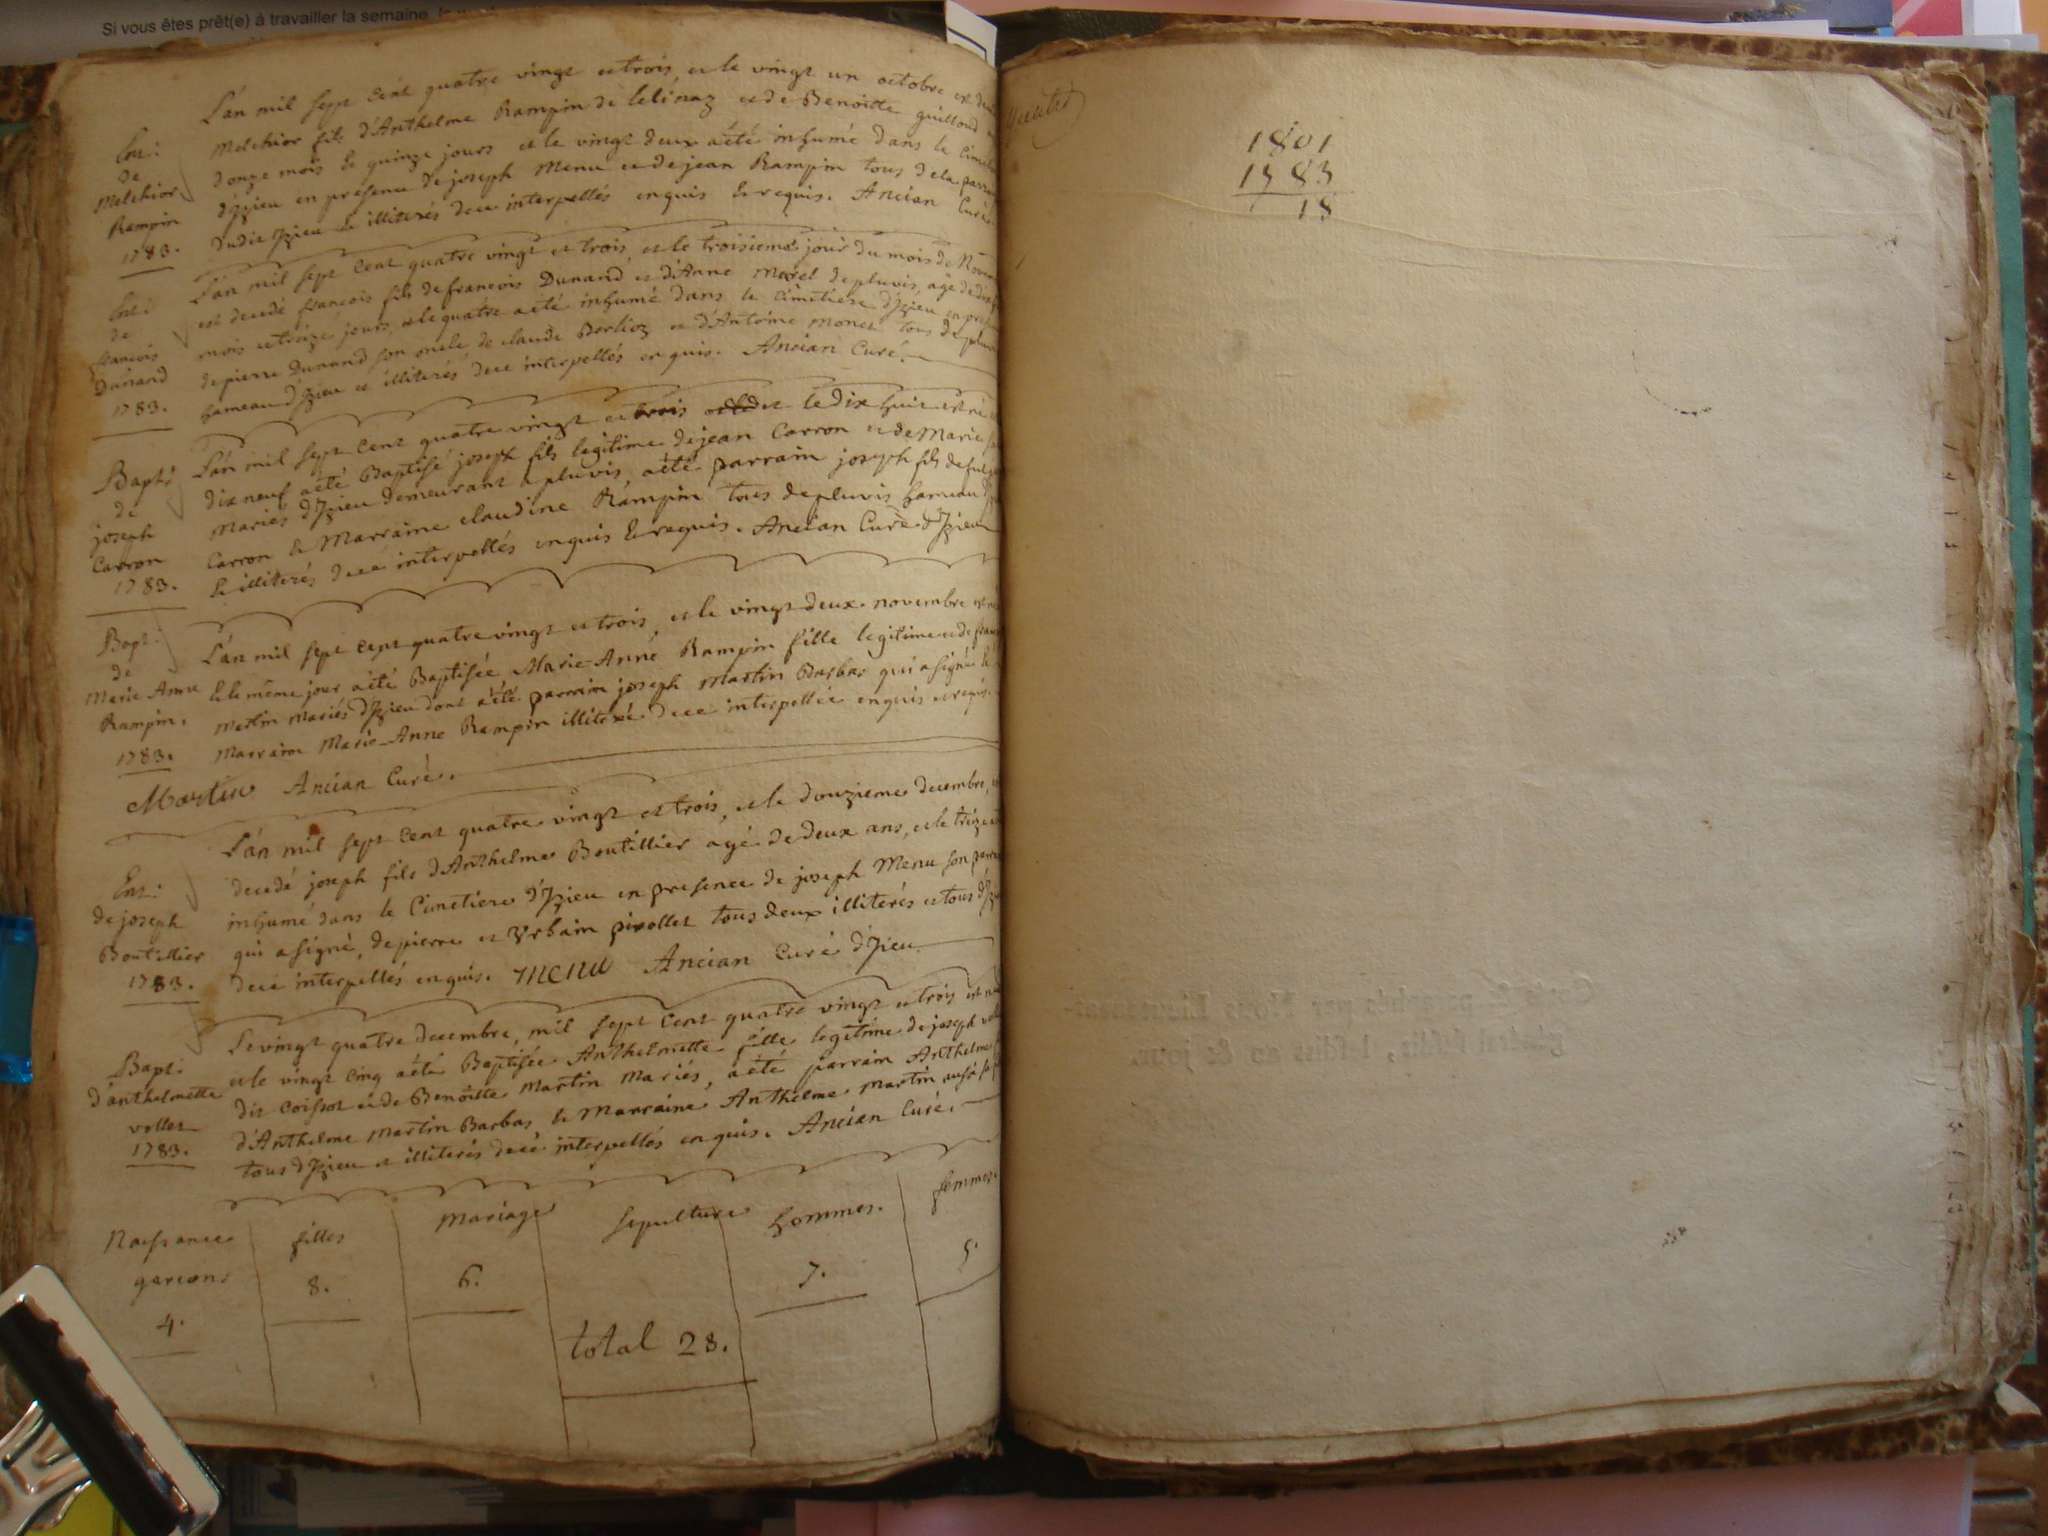 Si vous êtes prêt(e) à travailler la semaine, le
L'an mil sept cent quatre vingt et trois, et le vingt un octobre est
Melchior fils d'Anthelme Rampin de et de Benoitte guilloud
douze mois & quinze jours et le vingt deux a été inhumé dans le
d'Izieu en presence de joseph Menu et de jean Rampin tous de la
dudit Izieu & illiterés de ce interpellés enquis & requis. Ancian Curé
de
Melchior
Rampin
1783.
L'an mil sept cent quatre vingt et trois, et le troisieme jour du mois de
est decedé francois fils de francois Dunand et d'Anne Morel de pluvis, agé de
mois et treize jours, et le quatre a été inhumé dans le Cimetiere d'Izieu en
de pierre Dunand son oncle de claude Berlioz et d'Antoine Monet tous de
hameau d'Izieu et illiterés de ce interpellés enquis. Ancian Curé.
de
francois
Dunand
1783.
L'an mil sept cent quatre vingt et trois et le dix huit est né
dix neuf a été Baptisé joseph fils legitime de jean Carron et de Marie
Mariés d'Izieu demeurant a pluvis, a été parrain joseph fils de
Carron & Marraine claudine Rampin tous de pluvis hameau
& illiterés de ce interpellés enquis & requis. Ancian Curé d'Izieu
Bapt:
de
joseph
Carron
1783.
L'an mil sept cent quatre vingt et trois, et le vingt deux novembre est
& le même jour a été Baptisée Marie Anne Rampin fille legitime et de
Martin Mariés d'Izieu dont a été parrain joseph Martin Barbas qui a signé &
Marraine Marie-Anne Rampin illiterée de ce interpellée enquis et
Martin Ancian Curé.
Bapt:
de
Marie Anne
Rampin.
1783.
L'an mil sept cent quatre vingt et trois, et le douzieme decembre,
decedé joseph fils d'Anthelme Boutillier agé de deux ans, et le treize
inhumé dans le Cimetiere d'Izieu en presence de joseph Menu son
qui a signé, de pierre et Urbain pirollet tous deux illiterés et tous
de ce interpellés enquis. MENU Ancian Curé d'Izieu
Ent:
de joseph
Boutillier
1783.
Le vingt quatre decembre, mil sept cent quatre vingt et trois est
et le vingt cinq a été Baptisée Anthelmette fille legitime de joseph
dit Coissot et de Benoitte Martin Mariés, a été parrain Anthelme
d'Anthelme Martin Barbas, & Marraine Anthelme Martin
tous d'Izieu et illiterés de ce interpellés enquis. Ancian Curé.
Bapt:
d'anthelmette
vollet
1783.
Naissance
garcons
4.
filles
8.
Mariage
6.
sepulture
hommes.
7.
femmes.
5.
total 28.
1801
1783
18